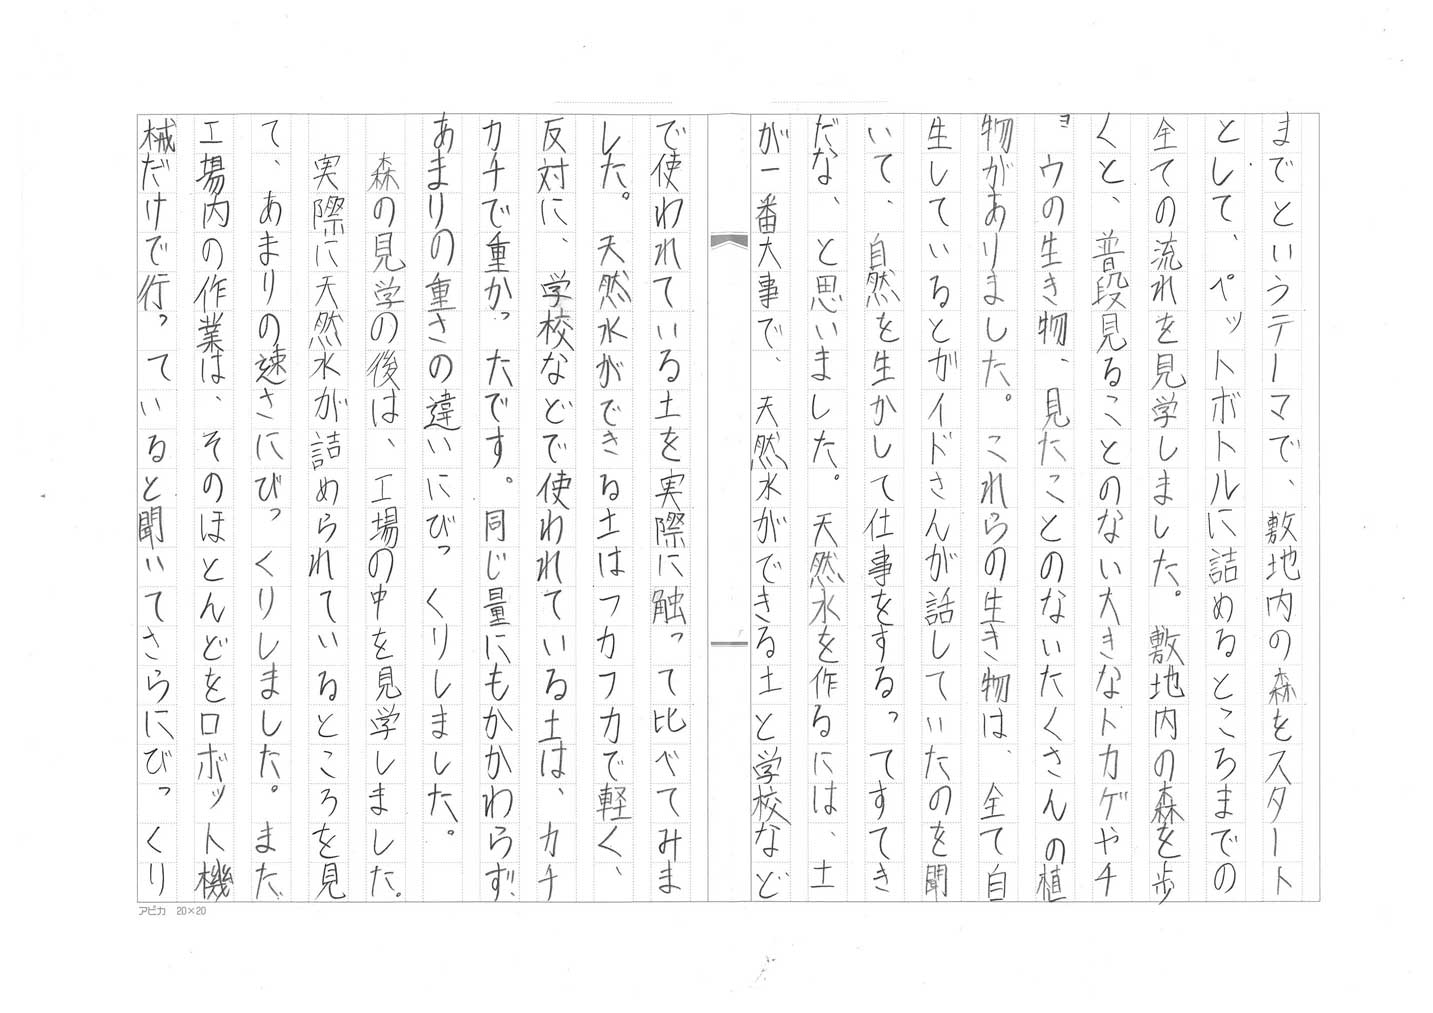 までというテーマで、敷地内の森をスタート
として、ペットボトルに詰めるところまでの
全ての流れを見学しました。敷地内の森を歩
くと、普段見ることのない大きなトカゲやチ
ョウの生き物、見たことのないたくさんの植
物がありました。これらの生き物は、全て自
生しているとガイドさんが話していたのを聞
いて、自然を生かして仕事をするってすてき
だな、と思いました。天然水を作るには、土
が一番大事で、天然水ができる土と学校など
で使われている土を実際に触って比べてみま
した。天然水ができる土はフカフカで軽く、
反対に、学校などで使われている土は、カチ
カチで重かったです。同じ量にもかかわらず、
あまりの重さの違いにびっくりしました。
森の見学の後は、工場の中を見学しました。
実際に天然水が詰められているところを見
て、あまりの速さにびっくりしました。また、
工場内の作業は、そのほとんどをロボット機
械だけで行っていると聞いてさらにびっくり
アピカ 20×20